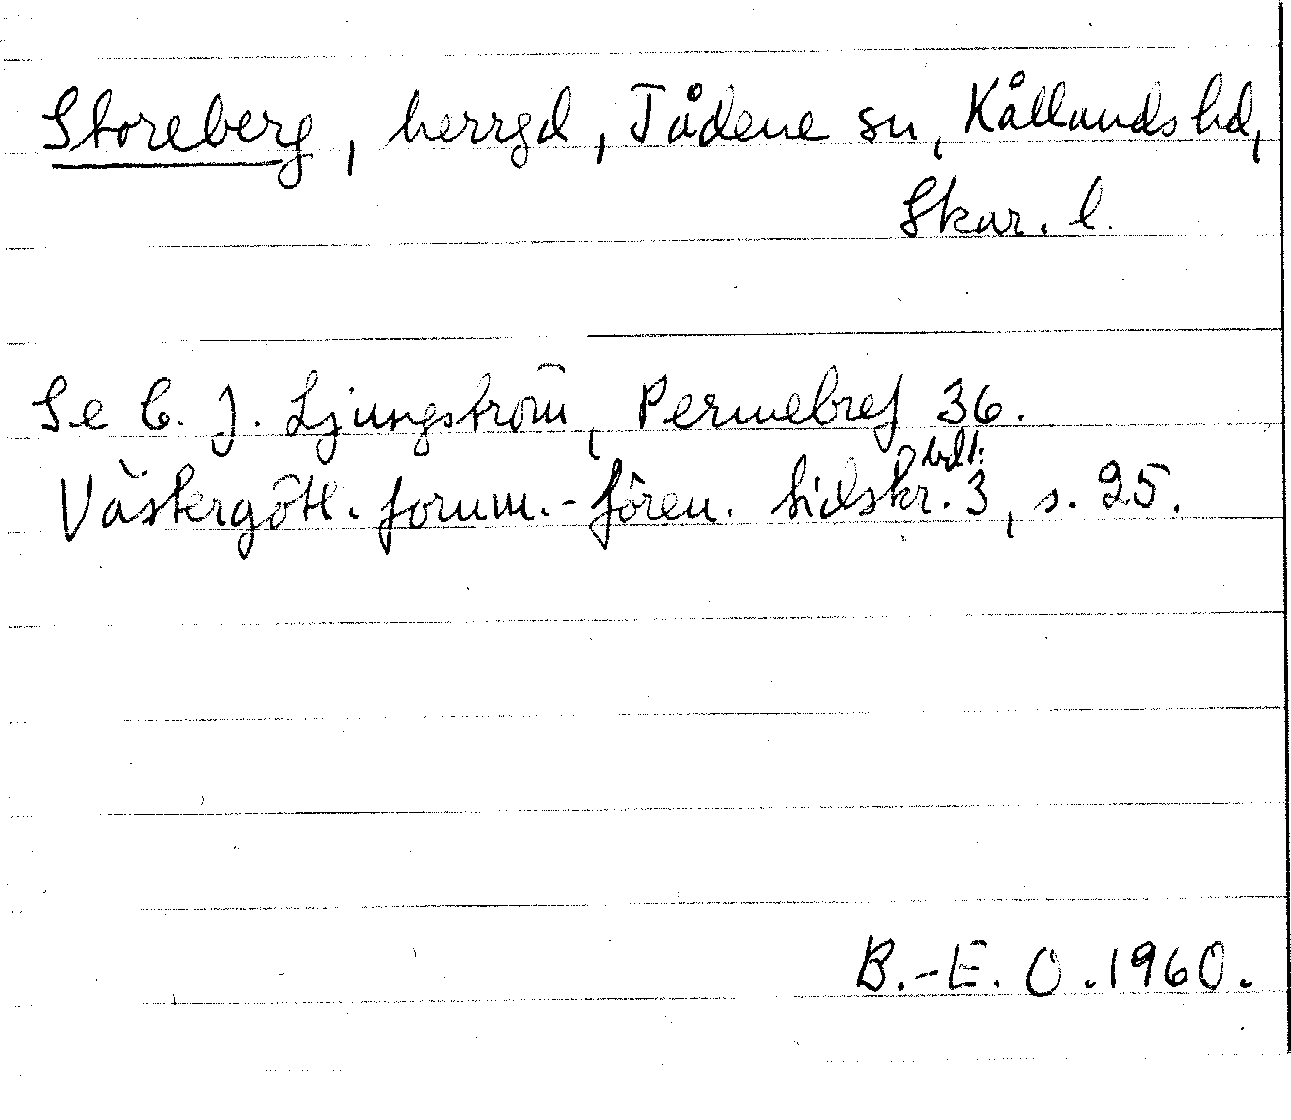 Storeberg, herrgd, Tådene sn, Kållands hd,
Skar. l.
Se C. J. Ljungström, Permebref 36.
Västergötl. fornm.-fören. tidskr. bd 1: 3, s. 25.
B.-E. O. 1960.